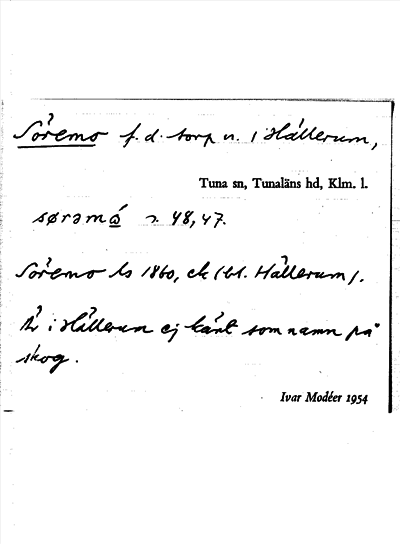 Söremo f.d. torp n. i Hällerum,
Tuna sn, Tunaläns hd, Klm. l.
sørəmó̲ s. 48, 47.
Söremo ls 1860, ek (bl. Hällerum).
Är i Hällerum ej känt som namn på
skog.
Ivar Modéer 1954